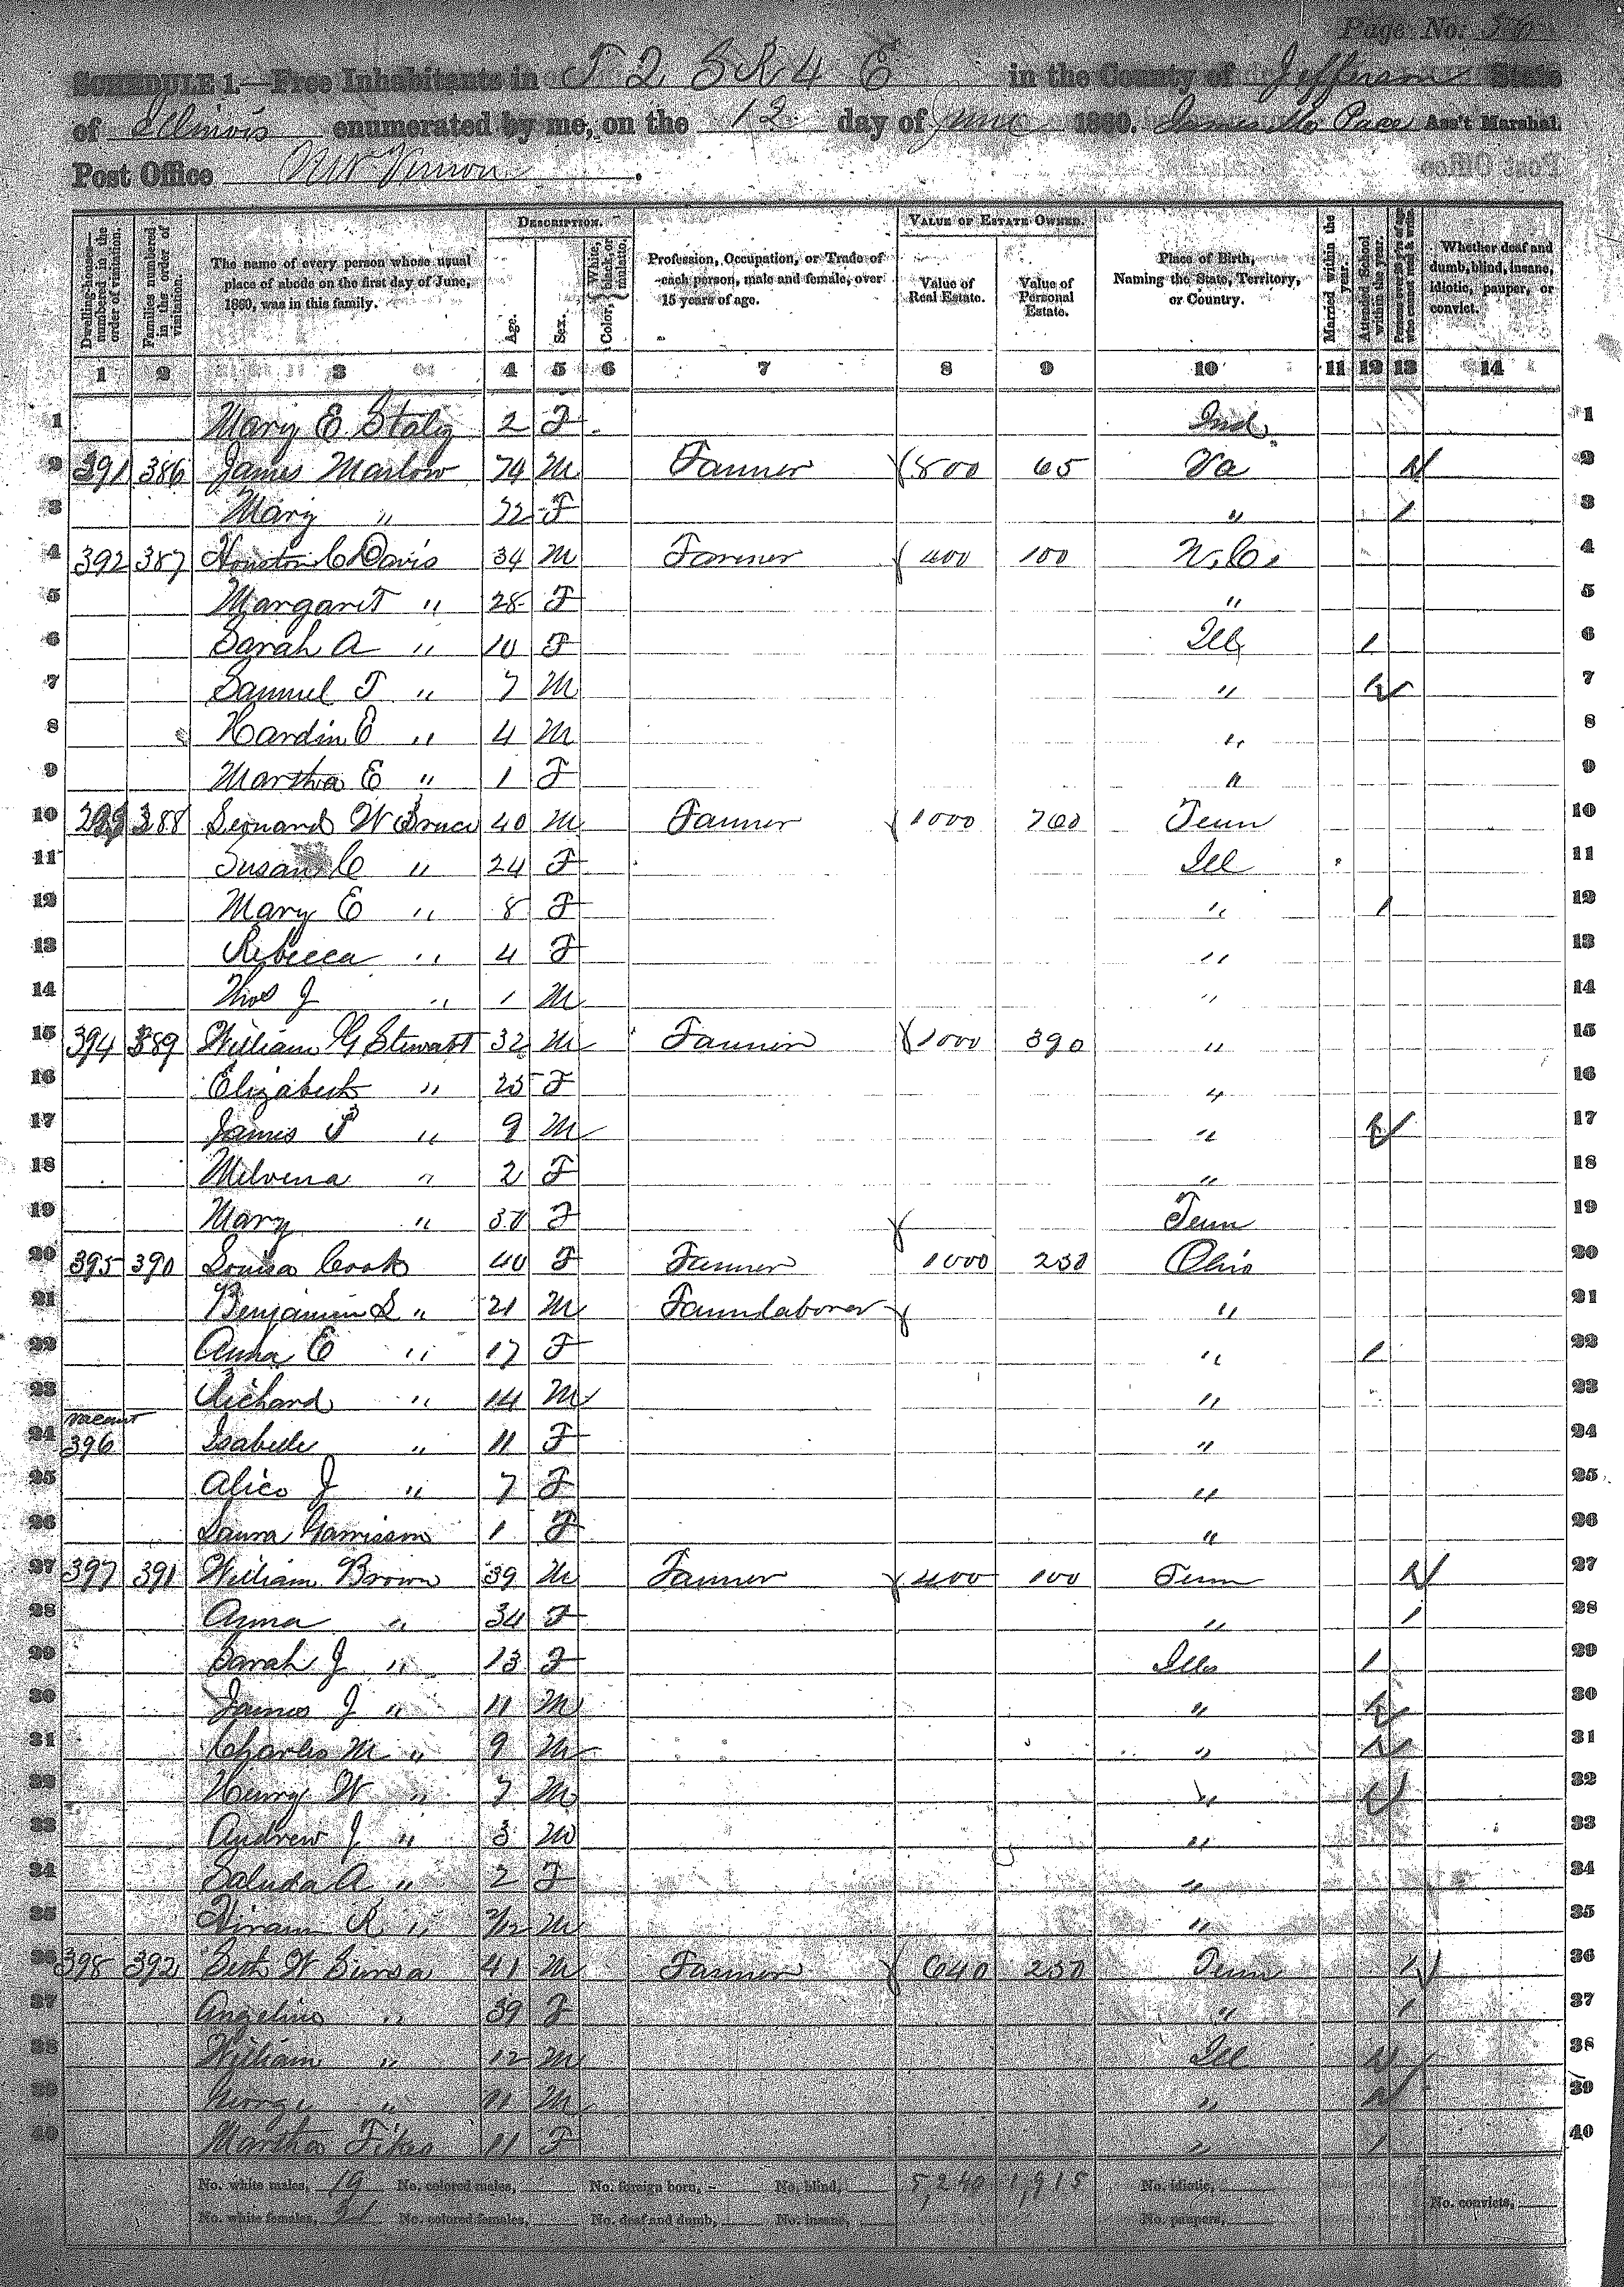 Page No.
SCHEDULE 1.—Free Inhabitants in T 2 S R 4 E in the County of Jefferson State
of Illinois enumerated by me, on the 12 day of June 1860. James M Pace Ass't Marshal.
Post Office Mt Vernon.
Dwelling-houses—numbered in the order of visitation. Families numbered in the order of visitation. The name of every person whose usual place of abode on the first day of June, 1860, was in this family. DESCRIPTION. Age. Sex. Color, White, black, or mulatto. Profession, Occupation, or Trade of each person, male and female, over 15 years of age. VALUE OF ESTATE OWNED. Value of Real Estate. Value of Personal Estate. Place of Birth, Naming the State, Territory, or Country. Married within the year. Attended School within the year. Persons over 20 y'rs of age who cannot read & write. Whether deaf and dumb, blind, insane, idiotic, pauper, or convict.
1 2 3 4 5 6 7 8 9 10 11 12 13 14
1 Mary E 2 F Ind 1
2 391 386 James Marlow 74 M Farmer 800 65 Va 1 2
3 Mary " 72 F " 1 3
4 392 387 Houston C Davis 34 M Farmer 400 100 N.C. 4
5 Margaret " 28 F " 5
6 Sarah A " 10 F Ill 1 6
7 Samuel T " 7 M " 1 7
8 Hardin E " 4 M " 8
9 Martha E " 1 F " 9
10 388 Leonard W Bruce 40 M Farmer 1000 760 Tenn 10
11 Susan C " 24 F Ill 11
12 Mary E " 8 F " 1 12
13 Rebecca " 4 F " 13
14 Thos J " 1 M " 14
15 394 389 William G Stewart 32 M Farmer 1000 390 " 15
16 Elizabeth " 25 F " 16
17 James P " 9 M " 1 17
18 Melvena " 2 F " 18
19 Mary " 30 F Tenn 19
20 395 390 Louisa Cook 40 F Farmer 1000 250 Ohio 20
21 Benjamin S " 21 M Farmlaborer " 21
22 Anna E " 17 F " 1 22
23 Richard " 14 M " 23
vacant
24 396 Isabelle " 11 F " 24
25 Alice J " 7 F " 25
26 Laura Garrison 1 F " 26
27 397 391 William Brown 39 M Farmer 400 100 Tenn 1 27
28 Anna " 34 F " 1 28
29 Sarah J " 13 F Ills 1 29
30 James J " 11 M " 1 30
31 Charles M " 9 M " 1 31
32 Henry W " 7 M " 1 32
33 Andrew J " 3 M " 33
34 Saluda A " 2 F " 34
35 Hiram R " /12 M " 35
36 398 392 Seth W 41 M Farmer 640 250 Tenn 1 36
37 Angeline " 39 F " 1 37
38 William " 12 M Ill 1 38
39 George " 11 M " 1 39
40 Martha Fikes 11 F " 1 40
No. white males, 19 No. colored males, No. foreign born, - No. blind, 5,240 1,915 No. idiotic,
No. white females, 21 No. colored females, No. deaf and dumb, No. insane, No. paupers, No. convicts,